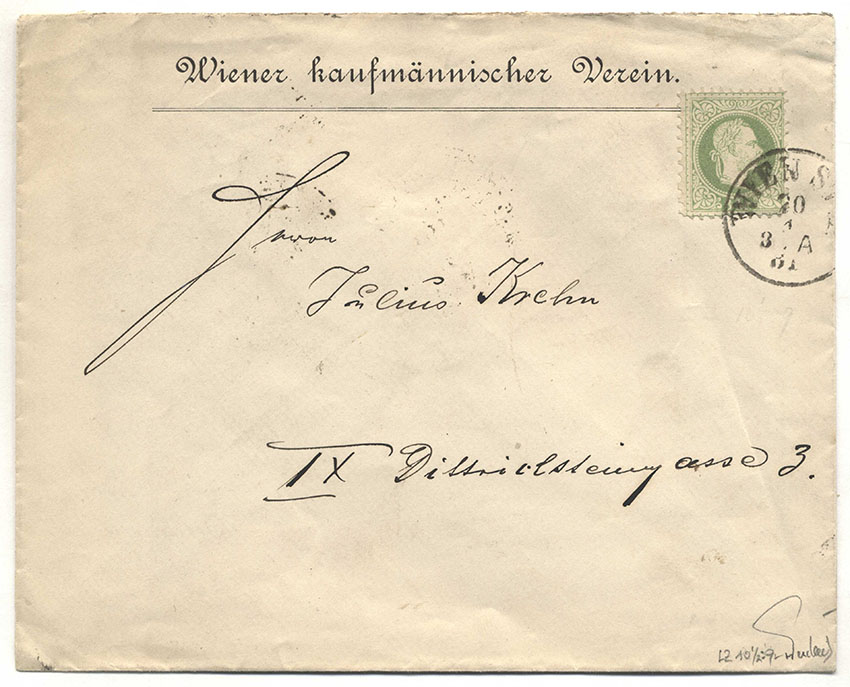 Wiener kaufmännischer Verein.
WIEN
20
1
3. A
81
Herrn
Julius Krehn
IX Dittrichsteingasse 3.
LZ 10½:9